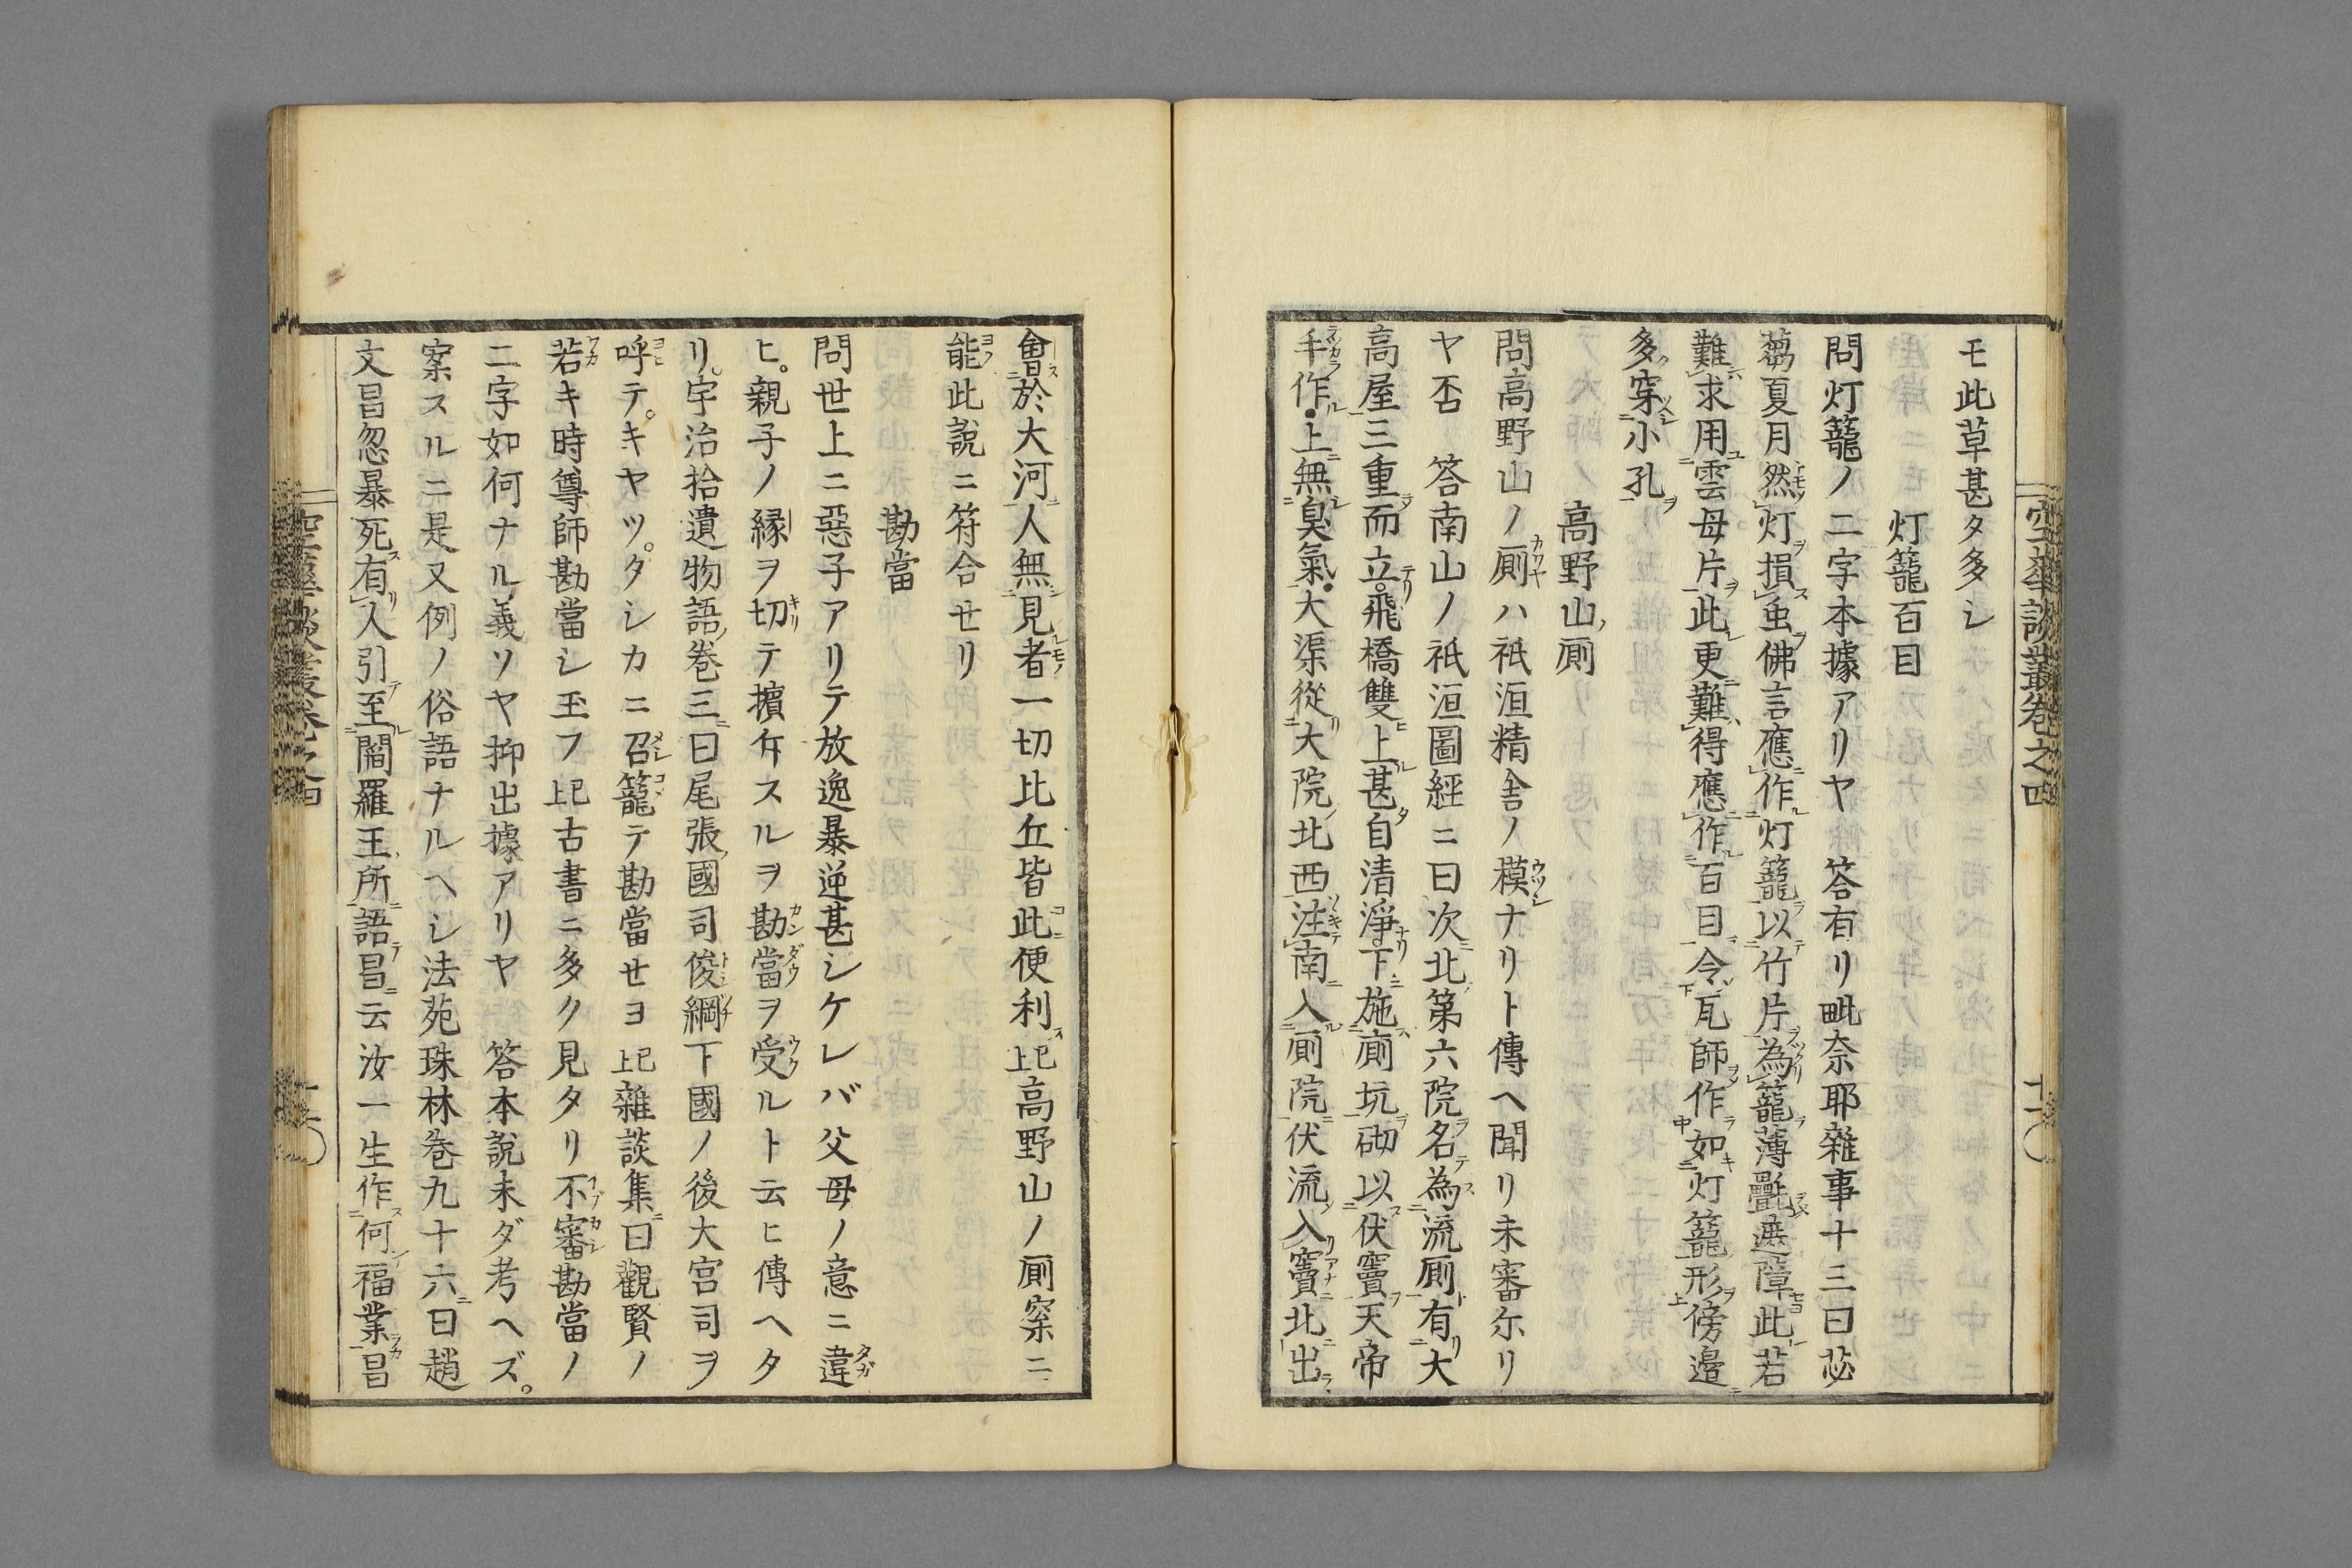 空華談叢卷之四
十一
モ此草甚タ多シ
灯籠百目
問灯籠ノ二字本據アリヤ 答有リ毗奈耶雜事十三曰苾
蒭夏月然灯損虫佛言應作灯籠以竹片為籠薄㲲遮障此若
難求用雲母片此更難得應作百目令瓦師作如灯籠形傍邊
多穿小孔
高野山ノ厠
問高野山ノ厠ハ祇洹精舎ノ模ナリト傳ヘ聞リ未審尓リ
ヤ否 答南山ノ祇洹圖經ニ曰次北第六院名為流厠有大
高屋三重而立飛橋雙上甚自清淨下施廁坑砌以伏竇天帝
手作上無臭氣大渠從大院北西注南入厠院伏流入竇北出
會於大河人無見者一切比丘皆此便利已上高野山ノ厠案ニ
能此說ニ符合セリ
勘當
問世上ニ惡子アリテ放逸暴逆甚シケレバ父母ノ意ニ違
ヒ。親子ノ縁ヲ切テ擯斥スルヲ勘當ヲ受ルト云ヒ傳ヘタ
リ。宇治拾遺物語卷三曰尾張國司俊綱下國ノ後大宮司ヲ
呼テ。キヤツ。タシカニ召籠テ勘當セヨ已上雜談集曰觀賢ノ
若キ時尊師勘當シ玉フ已上古書ニ多ク見タリ不審勘當ノ
二字如何ナル義ソヤ抑出據アリヤ 答本說未ダ考ヘズ。
案スルニ是又例ノ俗語ナルヘシ法苑珠林卷九十六曰趙
文昌忽暴死有人引至閻羅王所語昌云汝一生作何福業昌